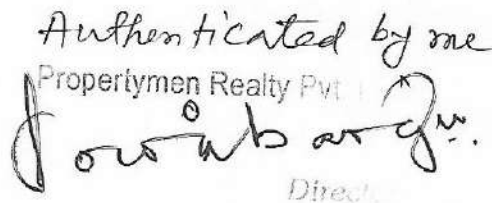 Authenticated by me
Propertymen Realty Pvt
Direct